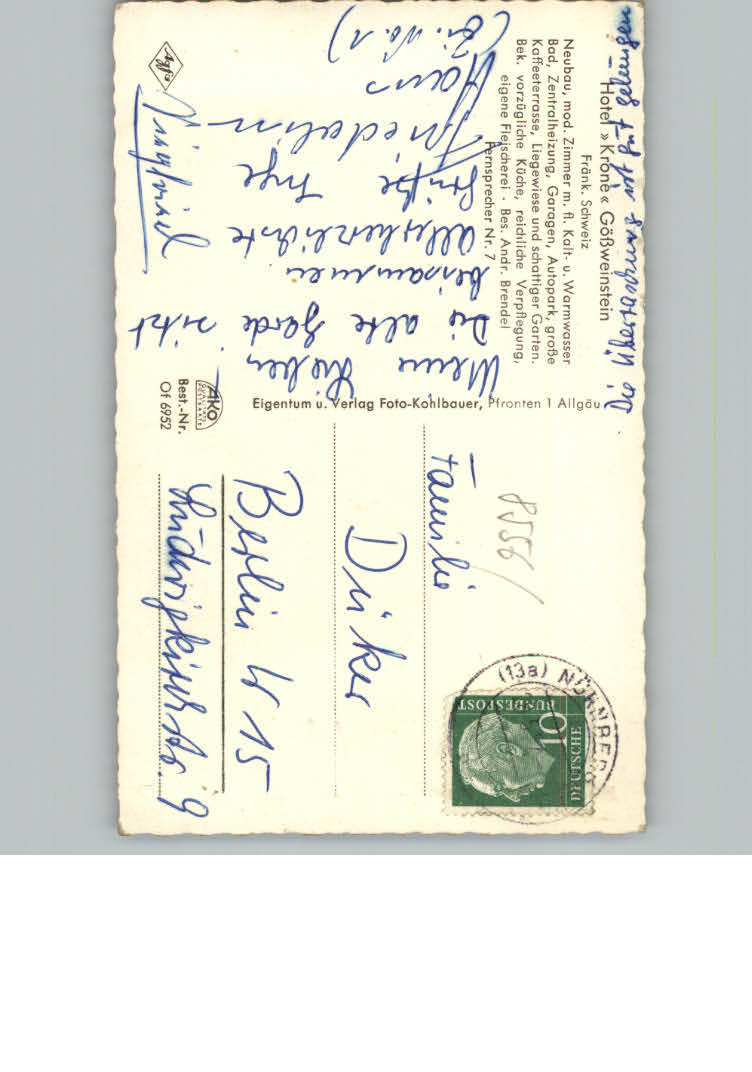 Hotel »Krone« Gößweinstein
Fränk. Schweiz
Neubau, mod. Zimmer m. fl. Kalt- u. Warmwasser
Bad, Zentralheizung, Garagen, Autopark, große
Kaffeeterrasse, Liegewiese und schattiger Garten.
Bek. vorzügliche Küche, reichliche Verpflegung,
eigene Fleischerei · Bes. Andr. Brendel
Fernsprecher Nr. 7
Meine Lieben
Die alte Garde sitzt
beisammen.
Allerherzlichste
Grüße Inge
Hans
Agfa
Eigentum u. Verlag Foto-Kohlbauer, Pfronten 1 Allgäu
AKO
Best.-Nr.
Of 6952
(13a) NÜRNBERG
DEUTSCHE
BUNDESPOST
10
8556/
Familie
Düker
Berlin W 15
Ludwigkirchstr. 9